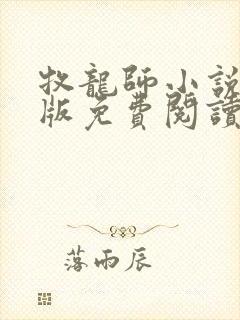 牧龍師小說
版免費閱讀
落雨辰